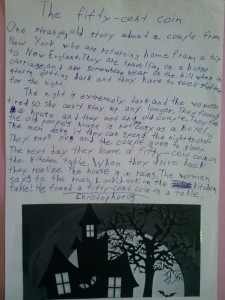 The fifty-cent coin
One strange, old story about a couple from
New York who are returning home from a trip
to New England. They are travelling on a horse
carriage, and are somewhere near on the hill when it
starts getting dark and they have to over
for the night.
The night is extremely dark and the women
tired so she can't stay up any longer. They found
a house and they met an old couple. They
the old people's house is not easy as a hotel,
the man says it they can spend the night there.
They and the couple going to sleep.
The next day they leave a fifty-cent coin on
the kitchen table. When they drive back
they realize the house is in ruins. The women
says to the man, look on the kitchen
table! He found a fifty-cent coin in a table.
Christophoros